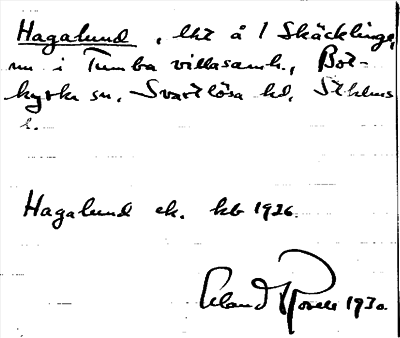 Hagalund, lht å 1 Skäcklinge,
nu i Tumba villasamh., Bot-
kyrka sn, Svartlösa hd, Sthlms
l.
Hagalund ek. kb 1926.
Erland Rosell 1930.